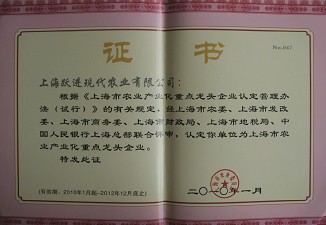 No.047
证书
上海跃进现代农业有限公司：
根据《上海市农业产业化重点龙头企业认定管理办
法（试行）》的有关规定，经上海市农委、上海市发改
委、上海市商务委、上海市财政局、上海市地税局、中
国人民银行上海总部联合评审，认定你单位为上海市农
业产业化重点龙头企业。
特发此证
（有效期：2010年1月起-2012年12月底止）
二〇一〇年一月